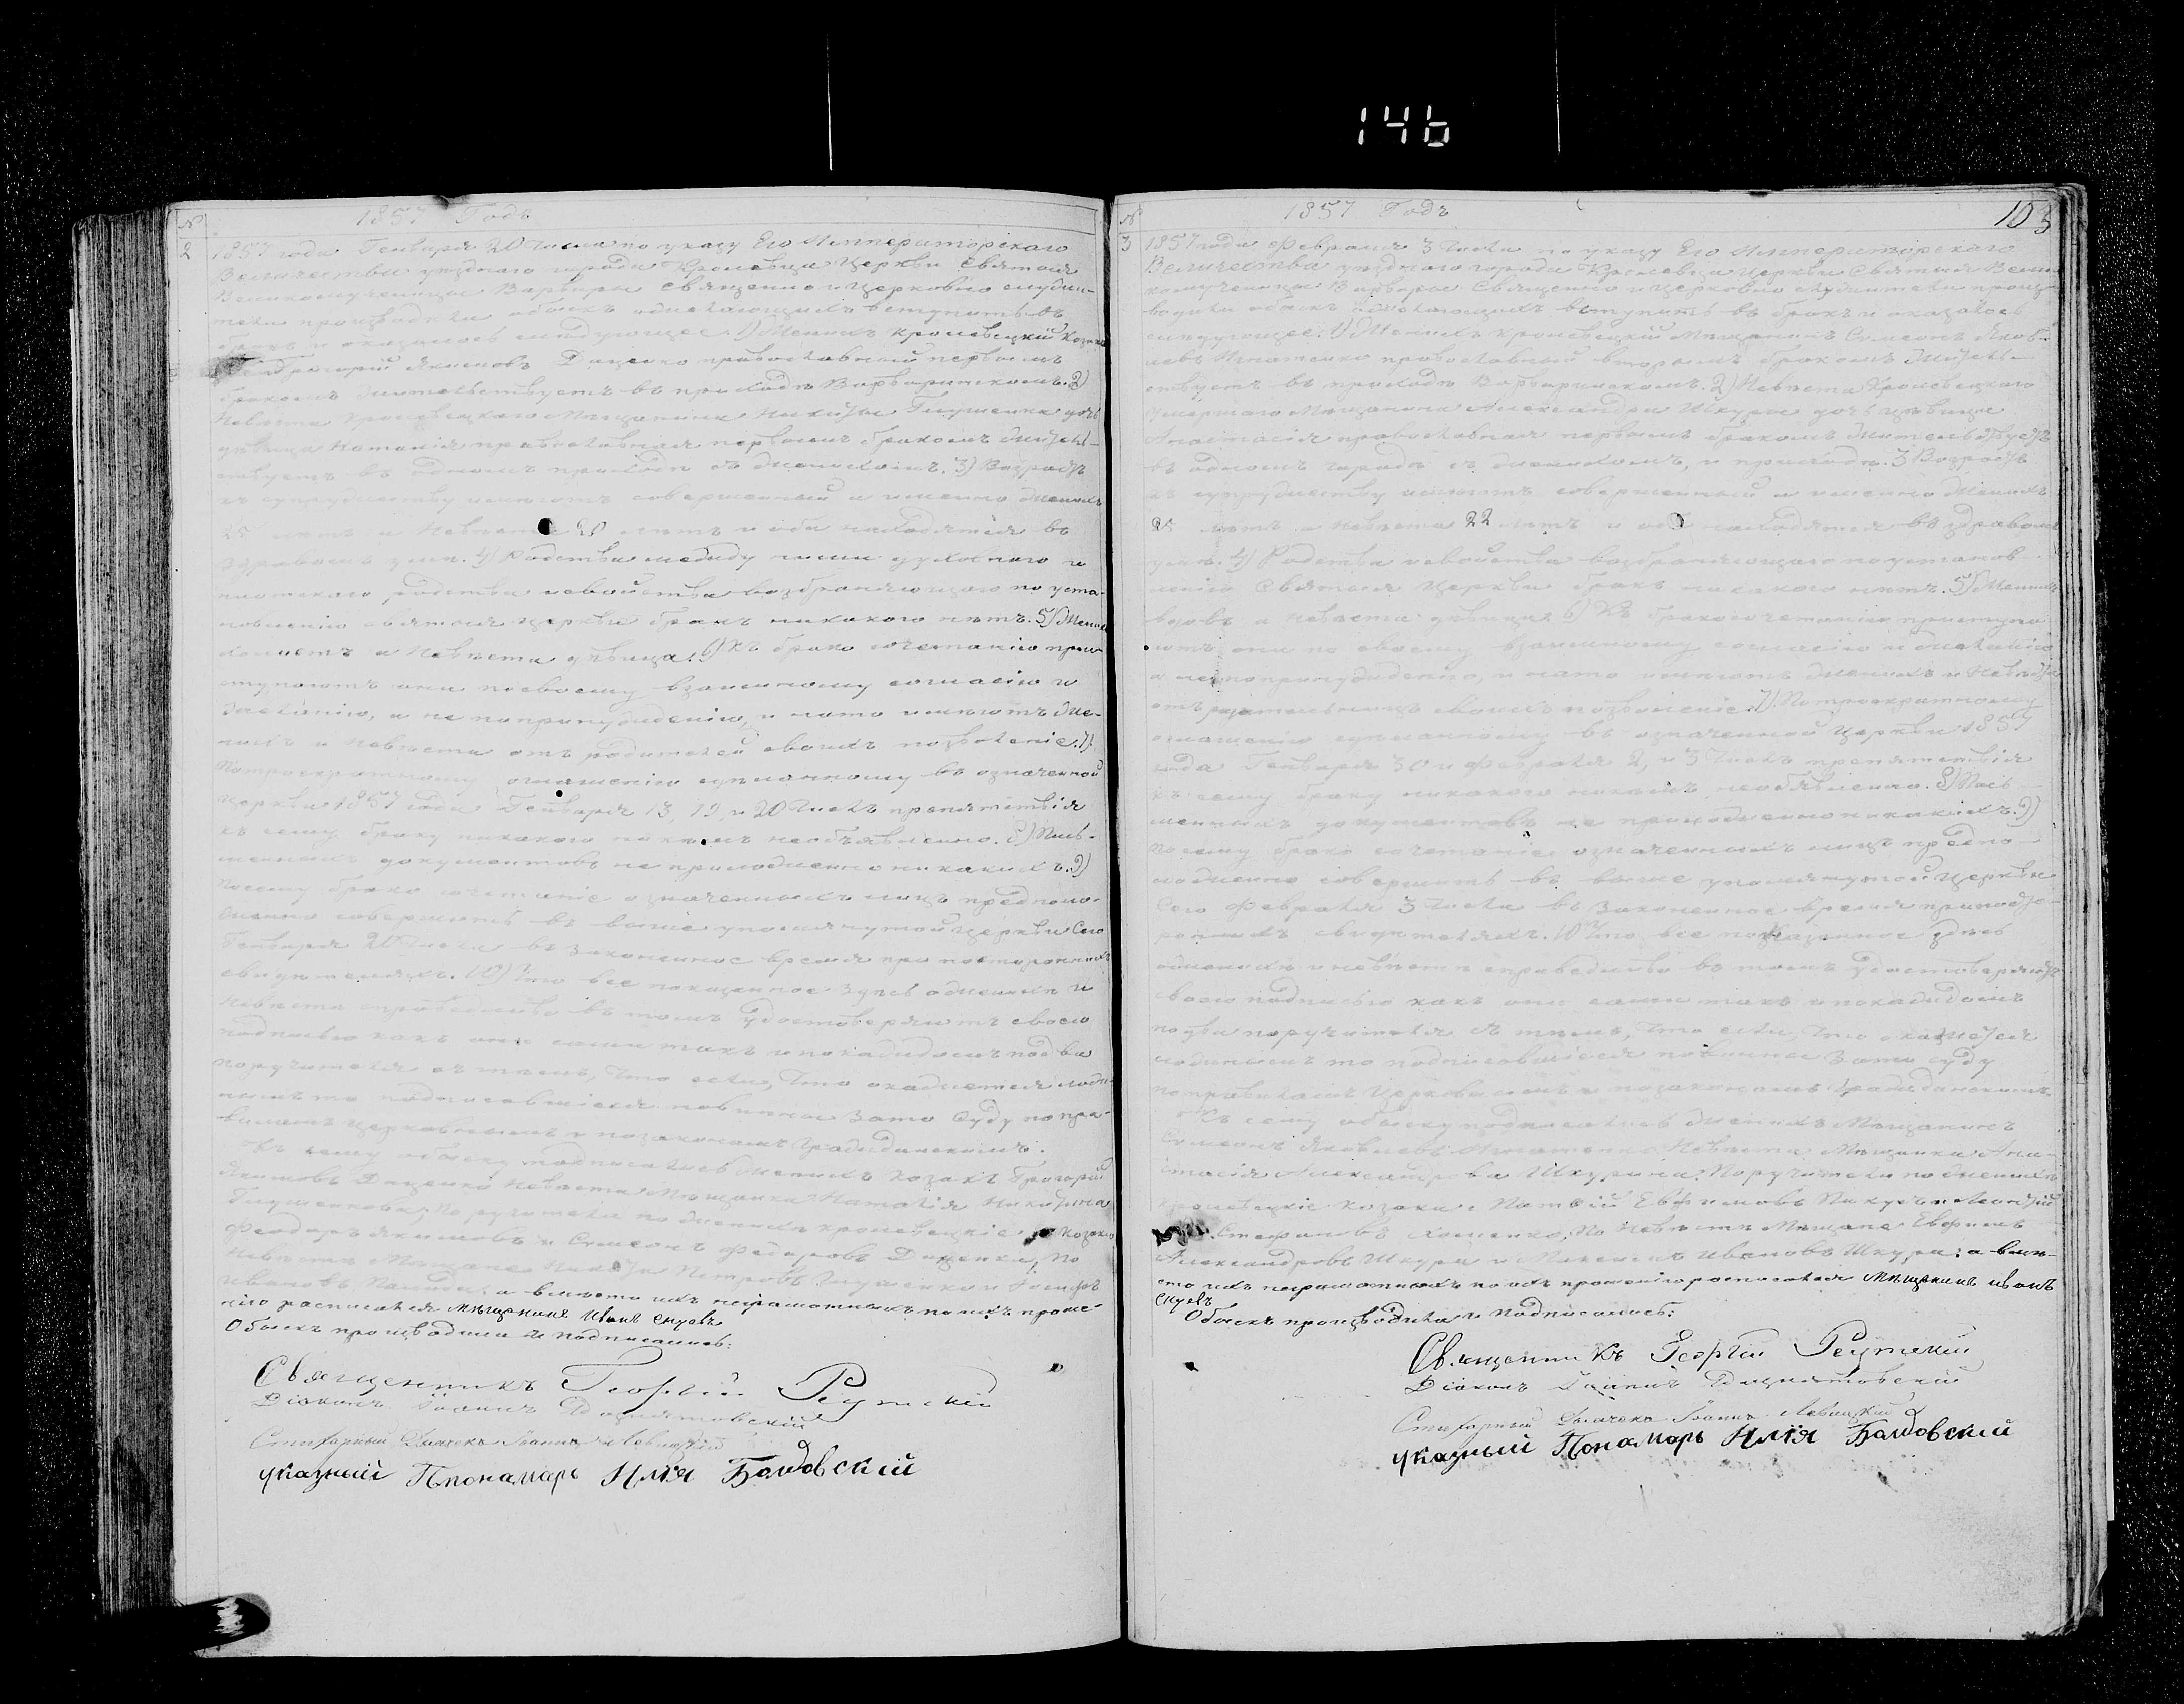 146
№ 1857 Годъ
2 1857 года Генваря 20 числа по указу Его Императорскаго
Величества уезднаго города Кролевца Церкви Святыя
Великомученицы Варвары священно и церковно служи-
тели производили обыскъ о желающихъ вступить въ
бракъ и оказалось следующее. 1) Женихъ кролевецкій козакъ
Григорій Якимовъ Даценко православный первымъ
бракомъ жительствуетъ въ приходѣ Варваринскомъ. 2)
Невѣста кролевецкаго мѣщанина Никиты Глушенка дочь
дѣвица Наталія православная первымъ бракомъ житель-
ствуетъ въ одномъ приходѣ съ женихомъ. 3) Возрастъ
къ супружеству имѣютъ совершенный и именно женихъ
25 лѣтъ и Невѣста 20 лѣтъ и оба находятся въ
здравомъ умѣ. 4) Родства между ними духовнаго и
плотскаго родства и свойства возбраняющаго по уста-
новленію святыя церкви бракъ никакого нѣтъ. 5) Женихъ
холостъ а Невѣста дѣвица. 6) Къ бракосочетанію при-
ступаютъ они по своему взаимному согласію и
желанію, а не по принужденію, и на то имѣютъ же-
нихъ и Невѣста отъ родителей своихъ позволеніе. 7)
По троекратному оглашенію сдѣланному въ означенной
церкви 1857 года Генваря 13, 19, и 20 числъ препятствія
къ сему браку никакого никѣмъ необъявленно. 8) Пись-
менныхъ документовъ не приложенно никакихъ. 9)
Посему бракосочетаніе означенныхъ лицъ предполо-
женно совершить въ выше упомянутой церкви Сего
Генваря 20 числа въ законенное время при постороннихъ
свидѣтеляхъ. 10) Что все показанное здѣсь о женихѣ и
Невѣстѣ справедливо въ томъ удостоверяютъ своею
подписью какъ они сами такъ и по каждомъ по два
поручителя съ тѣмъ, что если, что окажется лож-
нымъ то подписавшіеся повинны за то суду по пра-
виламъ церковнымъ и по законамъ Гражданскимъ.
Къ сему обыску подписались женихъ козакъ Григорій
Якимовъ Даценко Невѣста Мѣщанка Наталія Никитина
Глушенкова; Поручители по женихѣ кролевецкіе козаки
Феодоръ Якимовъ и Симеонъ Федоровъ Даценки, По
Невѣстѣ Мѣщане Никита Петровъ Глушенко и
Ивановъ а вмѣсто ихъ неграмотныхъ по ихъ проше-
нію расписался мѣщанинъ Иванъ Скуевъ
Обыскъ производили и подписались:
Священникъ Георгій Реутскій
Діаконъ Іоаннъ
Стихарный Дьячекъ Іоаннъ Левицкій
Указный Пономарь Илія Болдовскій
№ 1857 Годъ 103
3 1857 года Февраля 3 числа по указу Его Императорскаго
Величества уезднаго города Кролевца Церкви Святыя Вели-
комученицы Варвары Священно и церковно служители произ-
водили обыскъ о желающихъ вступить въ бракъ и оказалось
следующее. 1) Женихъ кролевецкій Мѣщанинъ Симеонъ Яков-
левъ Игнатенко православный вторымъ бракомъ житель-
ствуетъ въ приходѣ Варваринскомъ. 2) Невѣста Кролевецкаго
умершаго Мѣщанина Александра Шкуры дочь дѣвица
Анастасія православная первымъ бракомъ жительствуетъ
въ одномъ городѣ съ женихомъ, и приходѣ. 3 Возрастъ
къ супружеству имѣютъ совершенный и именно Женихъ
лѣтъ а Невѣста 22 лѣтъ и оба находятся въ здравомъ
умѣ. 4) Родства и свойства возбраняющаго по установ-
ленію Святыя Церкви бракъ никакого нѣтъ. 5) Женихъ
вдовъ а Невѣста дѣвица. 6) Къ бракосочетанію приступа-
ютъ они по своему взаимному согласію и желанію
а не по принужденію, и на то имѣютъ женихъ и Невѣста
отъ родительницъ своихъ позволеніе. 7) По троекратному
оглашенію сдѣланному въ означенной Церкви 1857
года Генваря 30 и Февраля 2, и 3 числъ препятствія
къ сему браку никакого никѣмъ необъявленно. 8) Пись-
менныхъ документовъ не приложенно никакихъ. 9)
Посему бракосочетаніе означенныхъ лицъ предпо-
ложенно совершить въ выше упомянутой Церкви
Сего Февраля 3 числа въ Законенное время при посто-
роннихъ свидѣтеляхъ. 10 Что все показанное здѣсь
о женихѣ и невѣстѣ справедливо въ томъ удостоверяютъ
своею подписью какъ они сами такъ и по каждомъ
по два поручителя съ тѣмъ, что если, что окажется
ложнымъ то подписавшіеся повинны за то суду
по правиламъ Церковнымъ и по законамъ Гражданскимъ.
Къ сему обыску подписались Женихъ Мѣщанинъ
Симеонъ Яковлевъ Игнатенко Невѣста Мѣщанка Ана-
стасія Александрова Шкурина: Поручители по женихѣ
кролевецкіе козаки Матвій Евфимовъ Пикусъ и Леонтій
Стефановъ Хоменко, По Невѣстѣ Мѣщане Евфимъ
Александровъ Шкура и Ивановъ Шкура; а вмѣ-
сто ихъ неграмотныхъ по ихъ прошенію росписался Мѣщанинъ Иванъ
Скуевъ
Обыскъ производили и подписались:
Священникъ Георгій Реутскій
Діаконъ Іоаннъ
Стихарный Дьячекъ Іоаннъ Левицкій
Указный Пономарь Илія Болдовскій